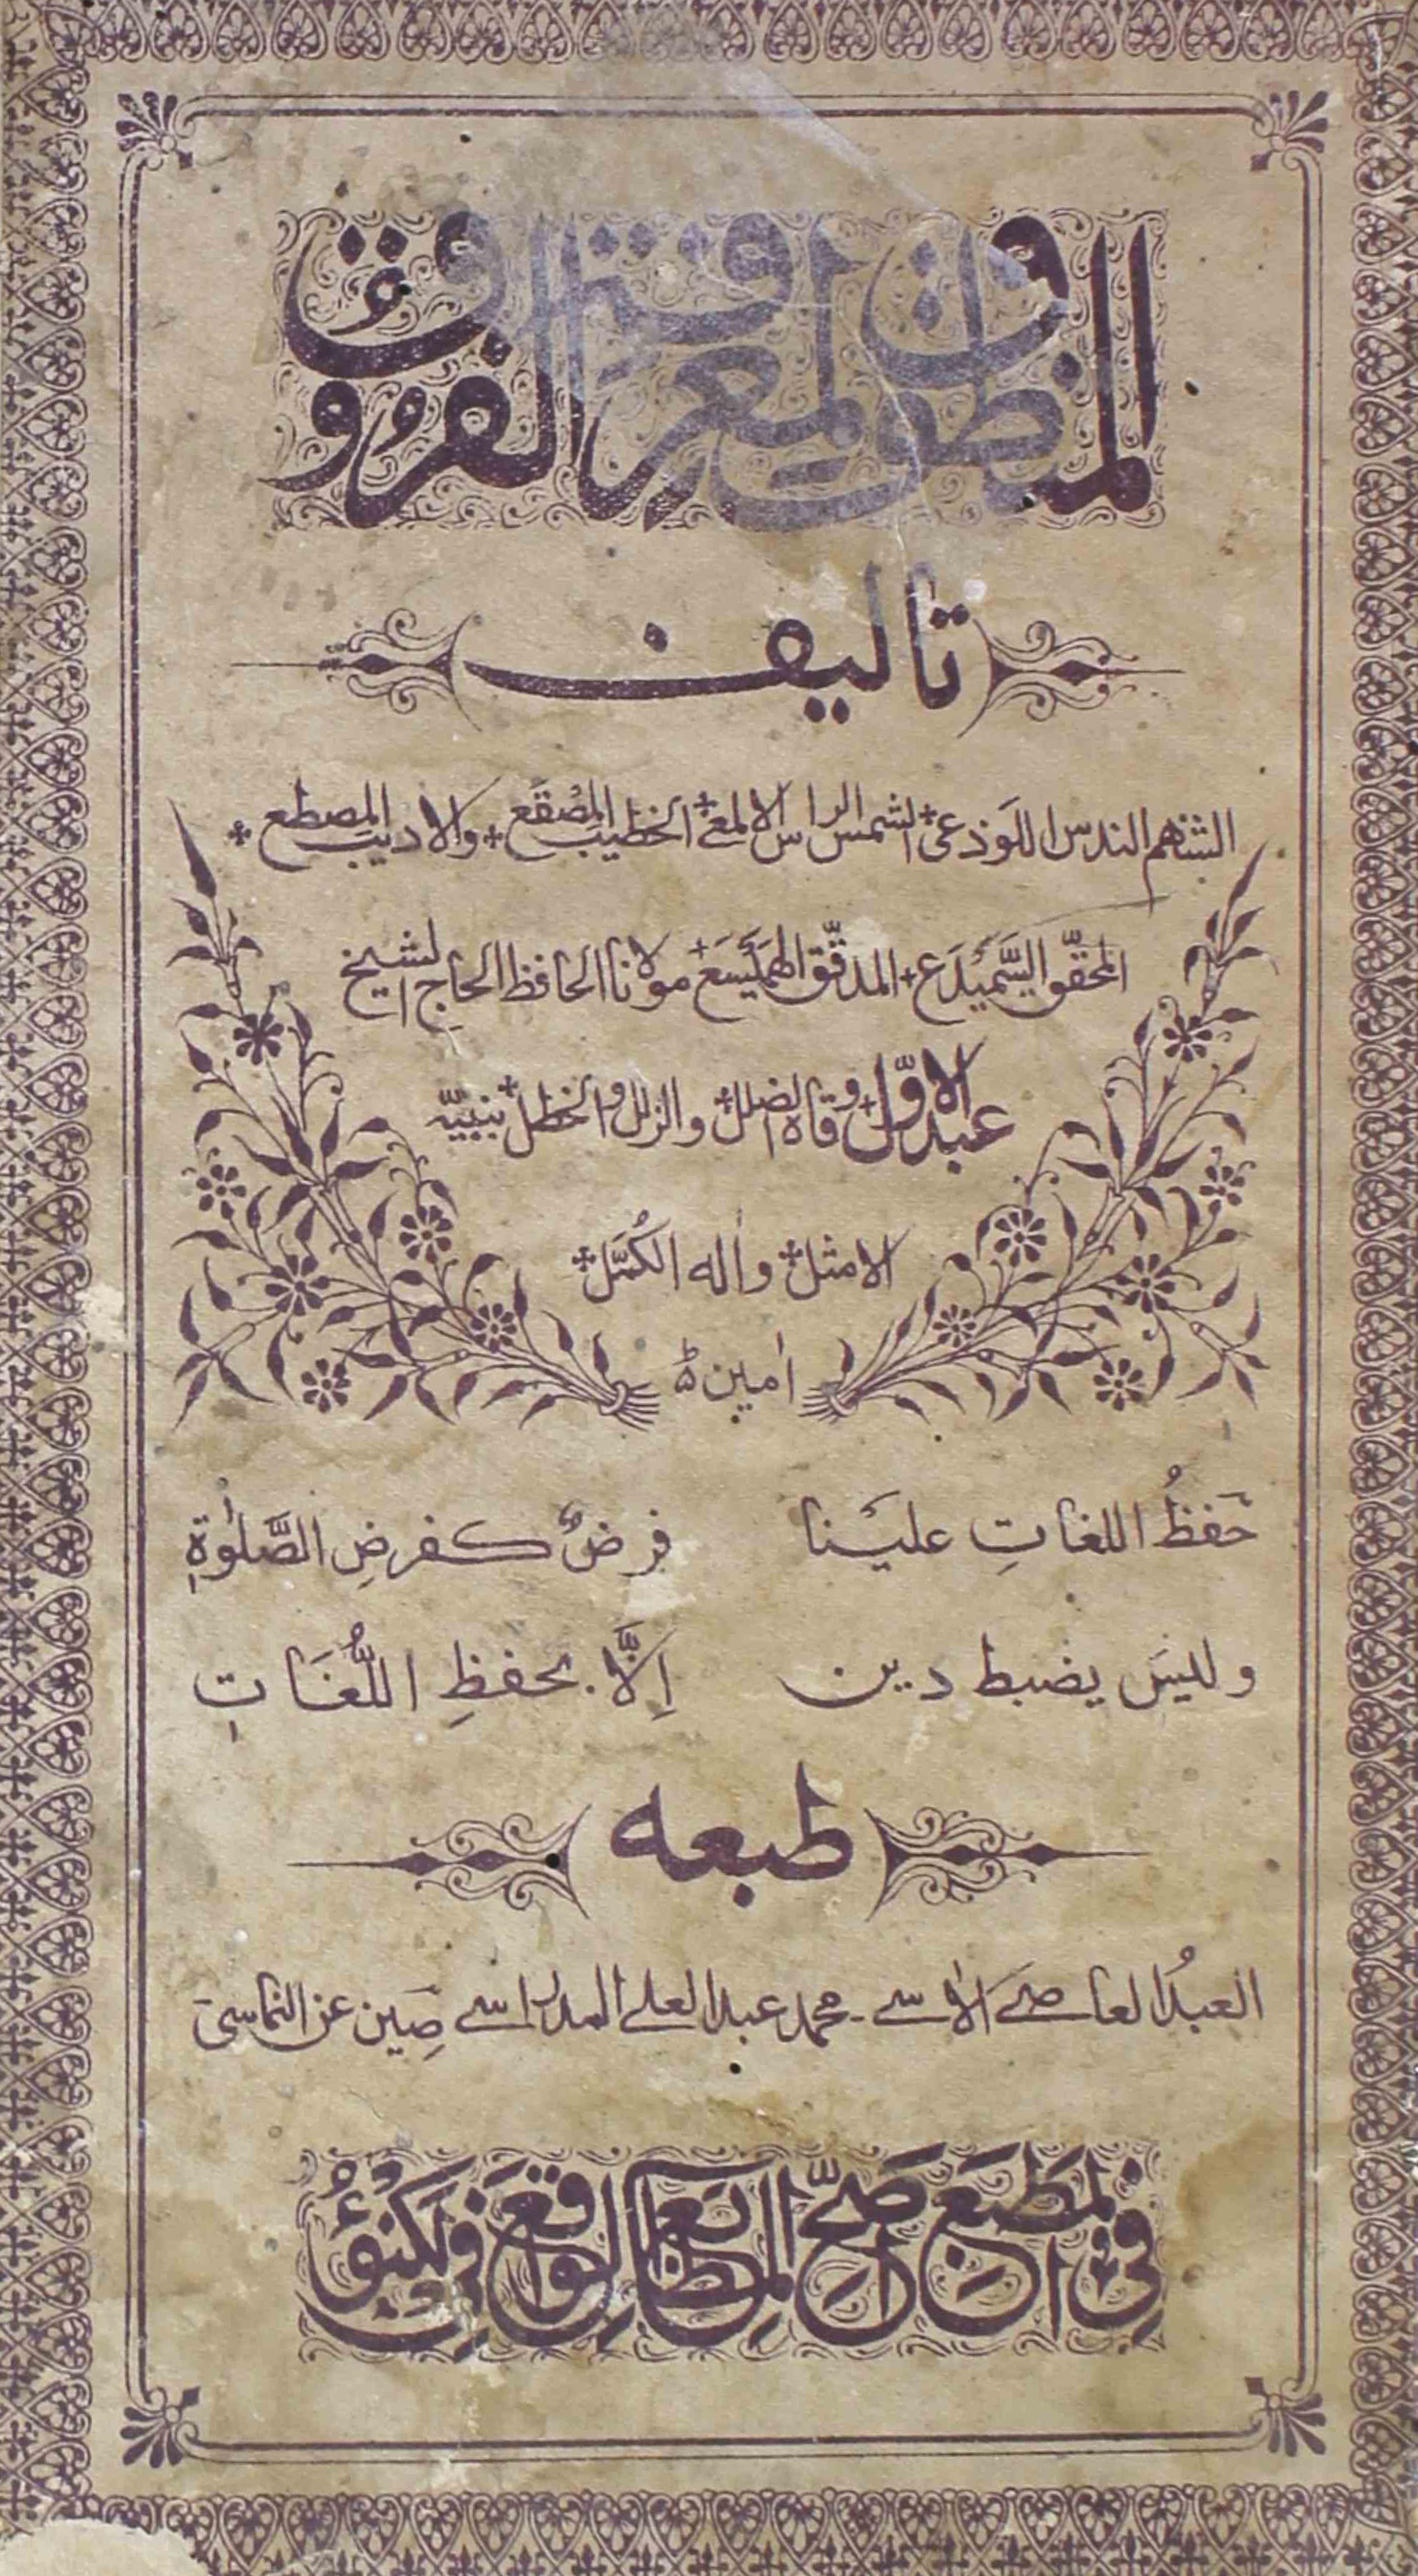 المنطوق لمعرفة الفروق
تاليف
الشهم الندس اللوذعي + الشمس الراس الالمعي + الخطيب المصقع + والاديب المصطع +
المحقق السميدع + المدقق الهميسع + مولانا الحافظ الحاج الشيخ
عبد الاوّل + وقاه الضلل + والزلل والخطل + بنبيّه
الامثل + واٰله الكُمَّل +
اٰمين
حَفظُ اللغاتِ علينا فرضٌ كفرضِ الصَّلوٰةِ
وليسَ يضبط دين اِلَّا بحفظِ اللُّغَاتِ
طبعه
العبدُ العاصے الاٰسے محمد عبد العلے المدراسے صِين عن التماسى
فِي المَطبَع اَصَحِّ المَطَابع الوَاقِع فِي لَكنؤُ